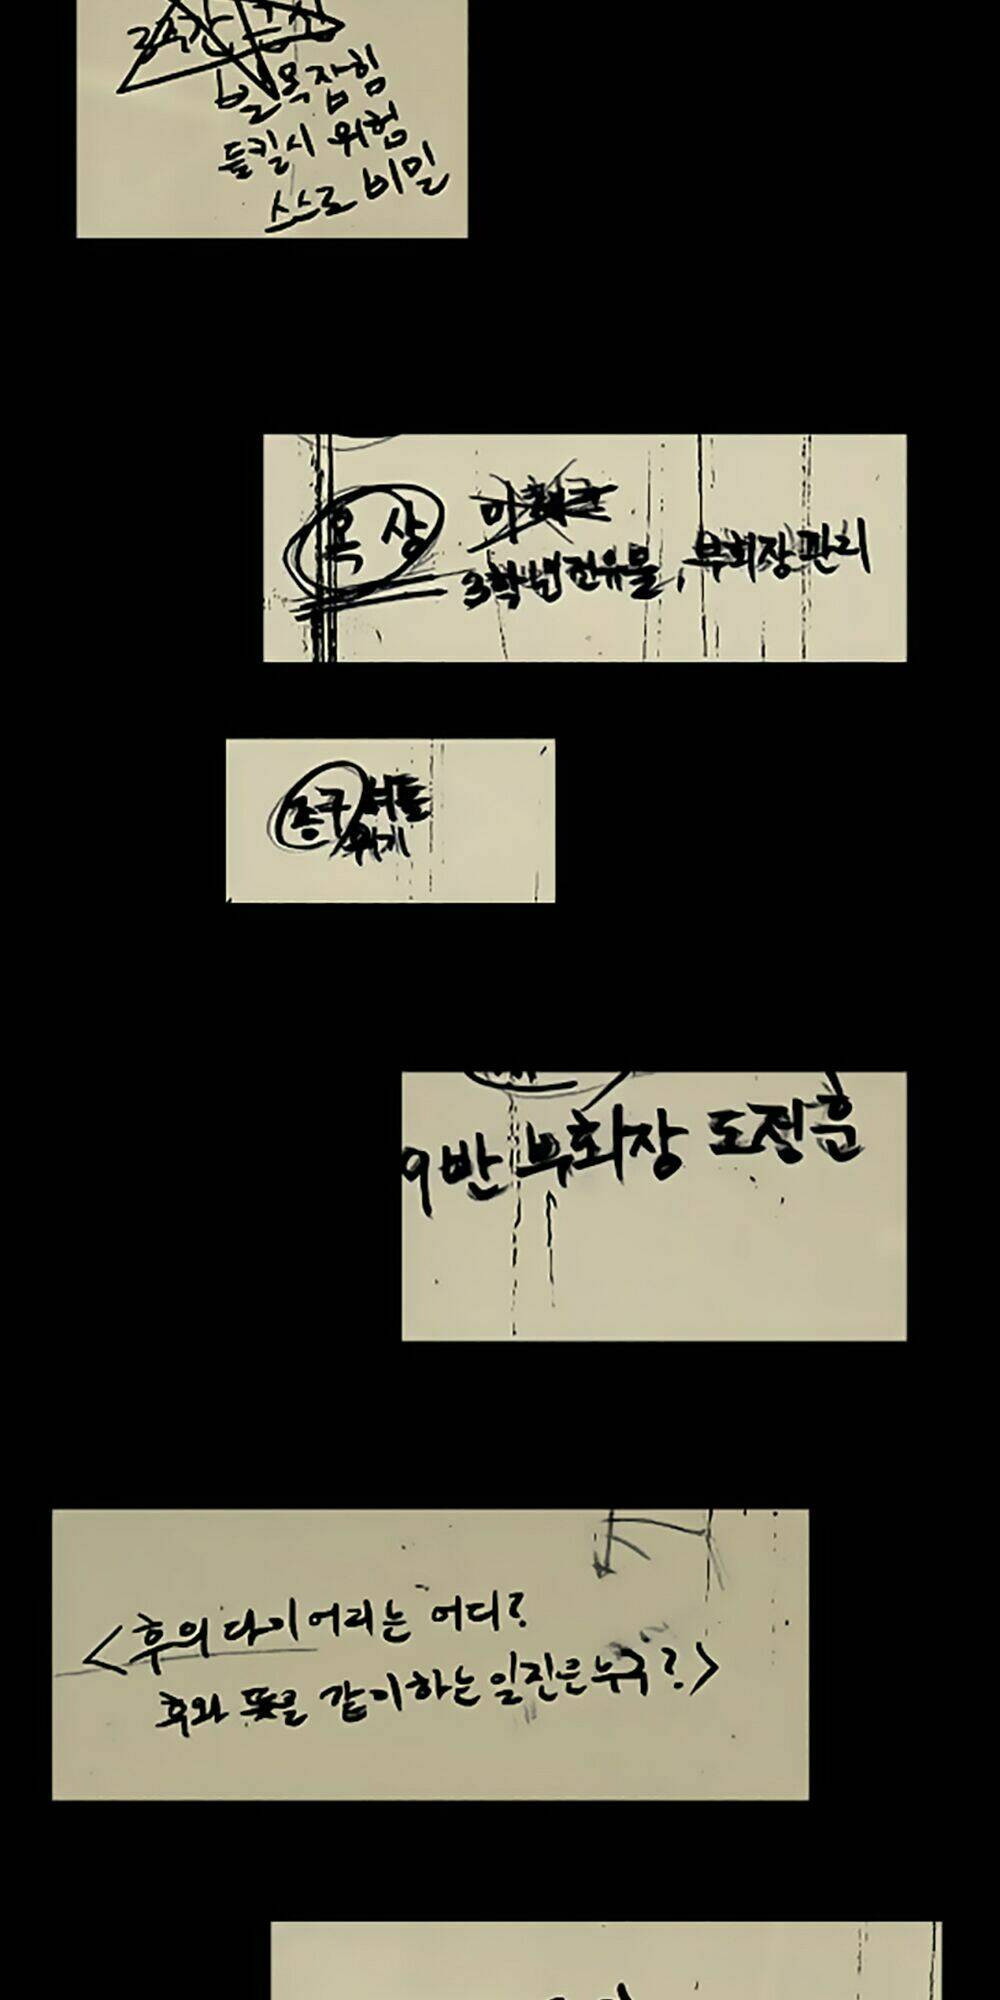 발목잡힘
들킬시 위험
스스로 비밀
옥상
3학년 전유물, 부회장관리
종구 셔틀
9반 부회장 도정훈
<후의 다이어리는 어디?
후와 뜻을 같이하는 일진은 누구?>